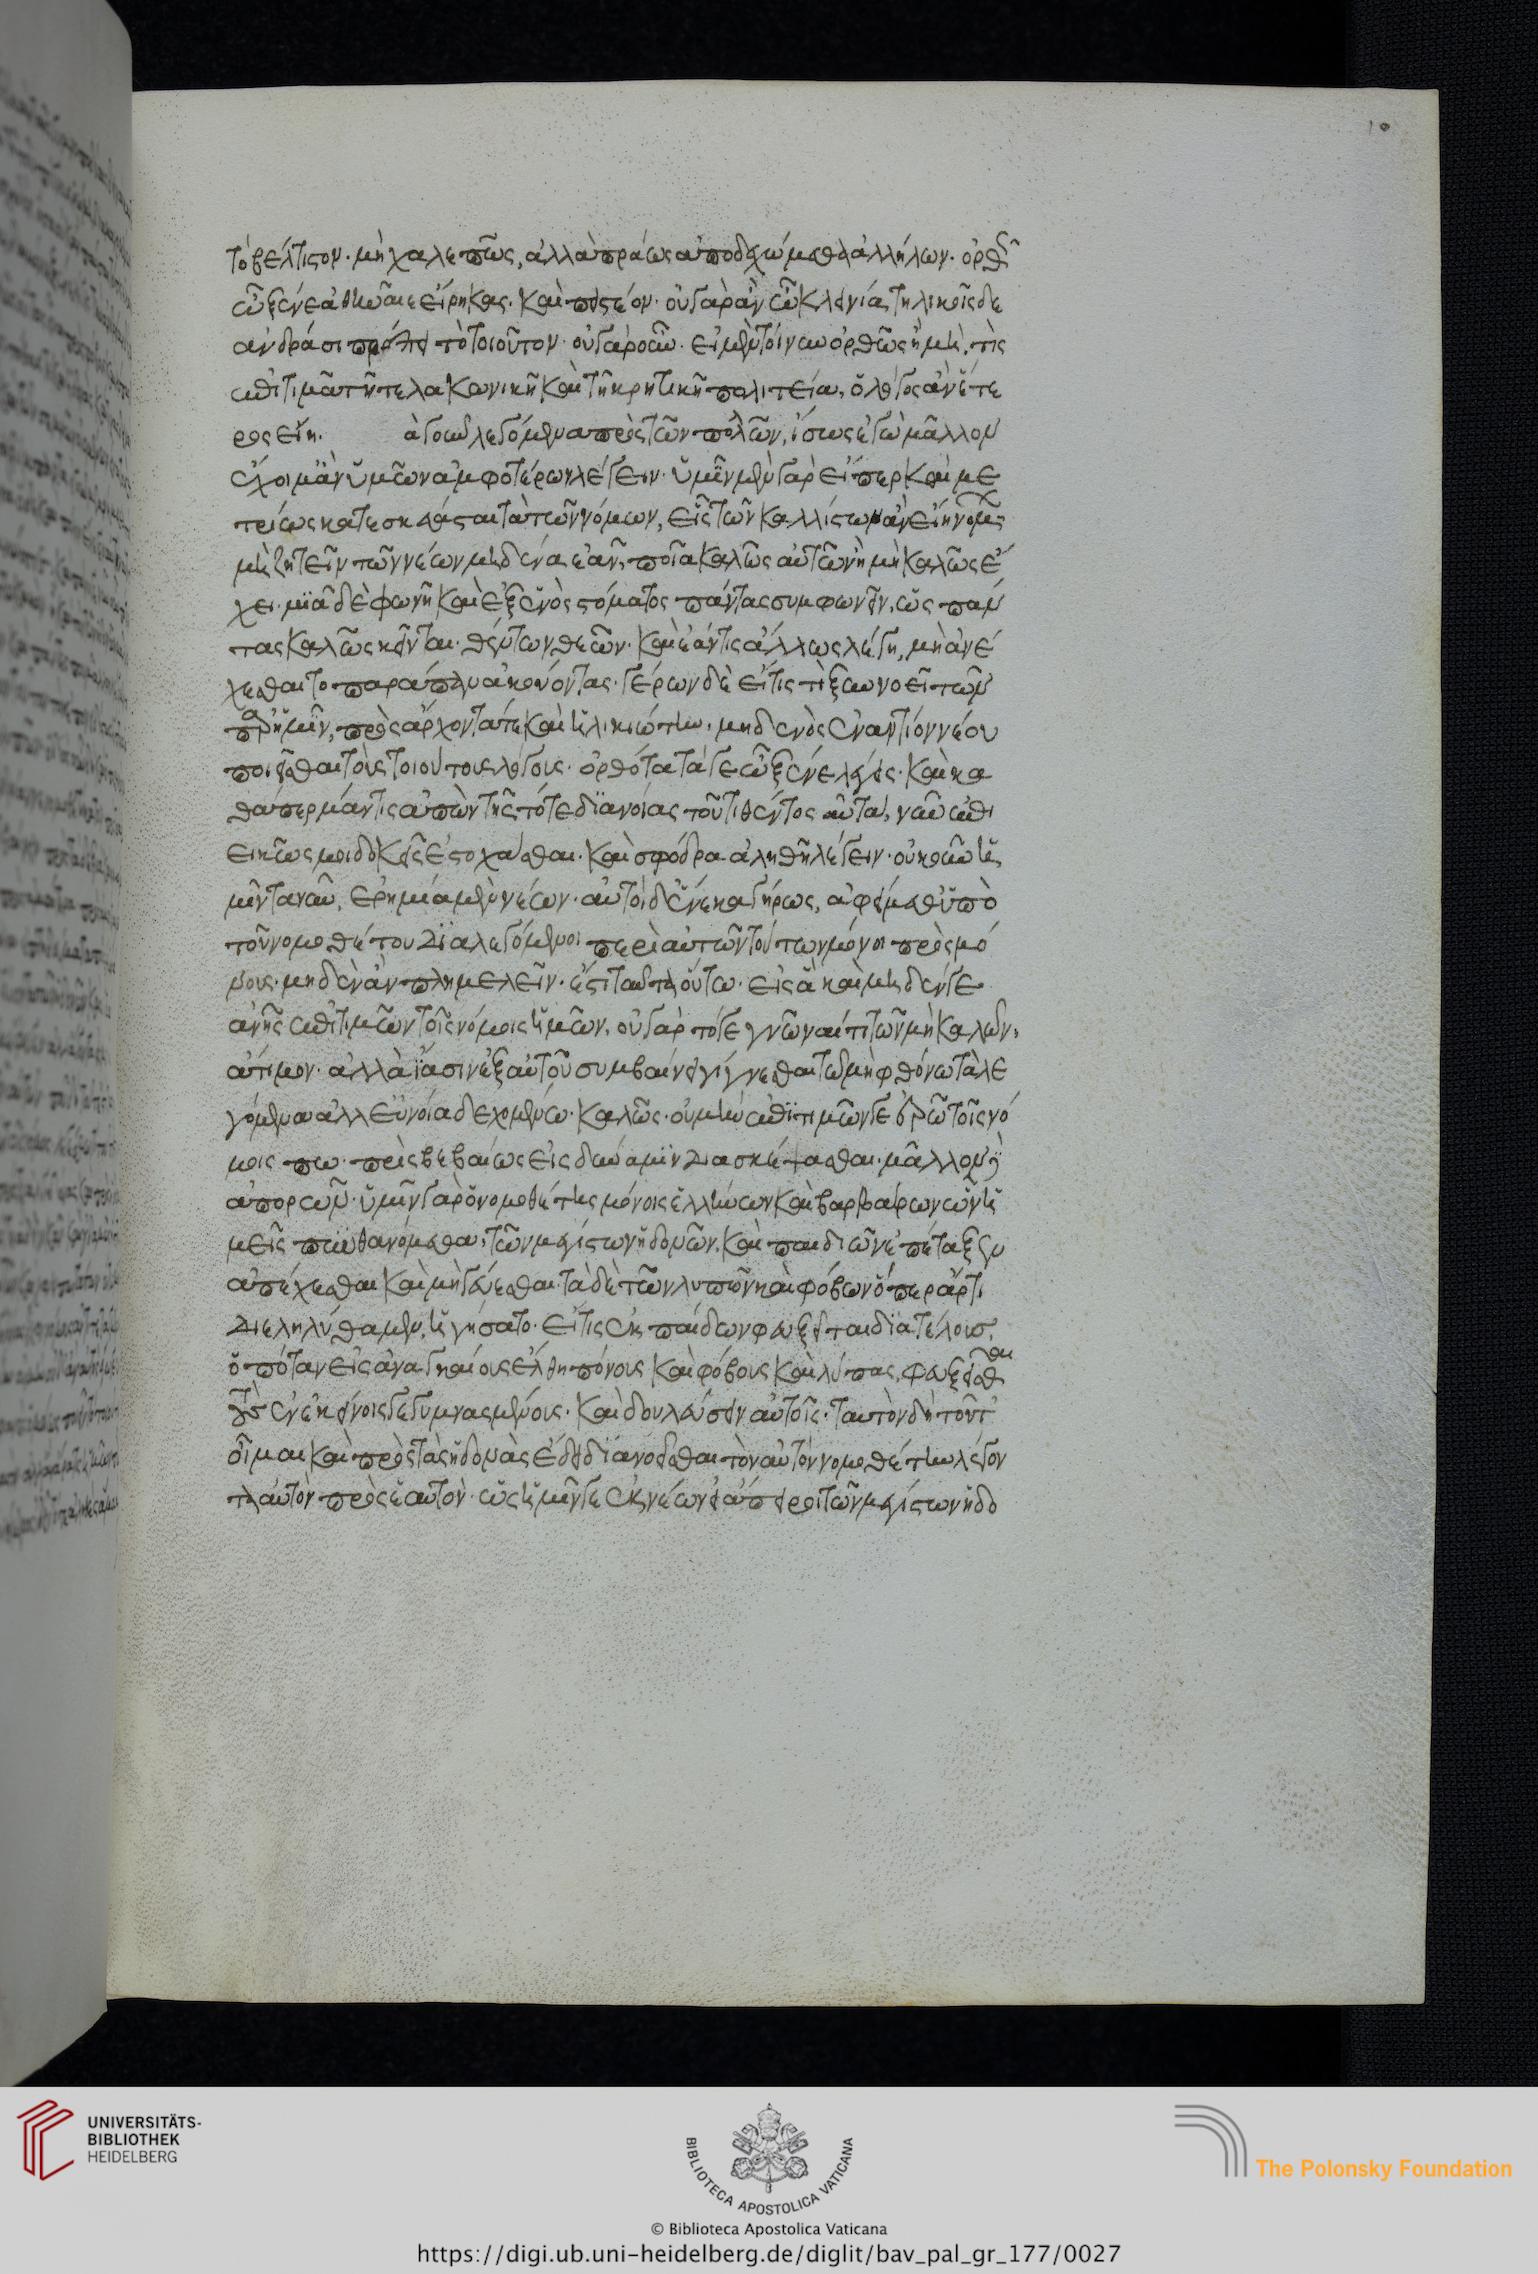 10
τὸ βέλτιστον· μὴ χαλεπῶς, ἀλλὰ πράως ἀποδεχώμεθα ἀλλήλων· ὀρθῶς
ὦ ξένε ἀθηναῖε εἴρηκας· καὶ πειστέον· οὐ γὰρ ἂν ὦ κλεινία τηλικοῖσδε
ἀνδράσι πρέποι τὸ τοιοῦτον· οὐ γὰρ οὖν· εἰ μὲν τοίνυν ὀρθῶς ἢ μή, τὶς
ἐπιτιμᾶ τῆ τε λακωνικῆ καὶ τῆ κρητικῆ πολιτεία, ὁ λόγος ἂν ἕτε
ρος εἴη. ἃ γοῦν λεγόμενα πρὸς τῶν πολλῶν, ἴσως ἐγὼ μᾶλλον
ἔχοιμ' ἂν ὑμῶν ἀμφοτέρων λέγειν· ὑμῖν μὲν γὰρ εἴπερ καὶ με
τρίως κατεσκεύασται τὰ τῶν νόμων, εἷς τῶν καλλίστων ἂν εἴη νόμος
μὴ ζητεῖν τῶν νέων μηδένα ἐᾶν, ποῖα καλῶς αὐτῶν ἢ μὴ καλῶς ἔ
χει· μιᾶ δὲ φωνῆ καὶ ἐξ ἑνὸς στόματος πάντας συμφωνεῖν, ὡς πάν
τας καλῶς κεῖνται· θέντων θεῶν· καὶ ἐάν τις ἄλλως λέγη, μὴ ἀνέ
χεσθαι τὸ παράπαν ἀκούοντας· γέρων δὲ εἴ τίς τι ξυννοεῖ τῶν
παρ' ἡμῖν, πρὸς ἄρχοντά τε καὶ ἡλικιώτην, μηδενὸς ἐναντίον νέου
ποιεῖσθαι τοὺς τοιούτους λόγους· ὀρθότατά γε ὦ ξένε λέγεις· καὶ κα
θάπερ μάντις ἀπὼν τῆς τότε διανοίας τοῦ τιθέντος αὐτά, νῦν ἐπι
εικῶς μοι δοκεῖς ἐστοχάσθαι· καὶ σφόδρα ἀληθῆ λέγειν· οὐκοῦν ἡ
μῖν τανῦν, ἐρημία μὲν νέων· αὐτοὶ δ' ἕνεκα γήρως, ἀφείμεθ' ὑπὸ
τοῦ νομοθέτου διαλεγόμενοι περὶ αὐτῶν τούτων μόνοι πρὸς μό
νους· μηδὲν ἂν πλημελεῖν· ἔστι ταῦτα οὕτω· εἰς ἃ καὶ μηδέν γε
ἀνῆς ἐπιτιμῶν τοῖς νόμοις ἡμῶν, οὐ γὰρ τό γε γνῶναί τι τῶν μὴ καλῶν,
ἄτιμον· ἀλλὰ ἴασιν ἐξ αὐτοῦ συμβαίνει γίγνεσθαι τῶ μὴ φθόνω τὰ λε
γόμενα ἀλλ' εὐνοία δεχομένω· καλῶς· οὐ μὴν ἐπιτιμῶν γε ἐρῶ τοῖς νό
μοις πω· πρὶν βεβαίως εἰς δύναμιν διασκέψασθαι· μᾶλλον δὲ
ἀπορῶν· ὑμῖν γὰρ ὁ νομοθέτης μόνοις ἑλλήνων καὶ βαρβάρων ὧν ἡ
μεῖς πυνθανόμεθα, τῶν μεγίστων ἡδονῶν, καὶ παιδιῶν ἐπέταξεν
ἀπέχεσθαι καὶ μὴ γεύεσθαι· τὰ δὲ τῶν λυπῶν καὶ φόβων ὅπερ ἄρτι
διεληλύθαμεν, ἡγήσατο· εἴ τις ἐκ παίδων φευξεῖται διὰ τέλους,
ὁπόταν εἰς ἀναγκαίους ἔλθη πόνους καὶ φόβους καὶ λύπας, φευξεῖσθαι
τοὺς ἐν ἐκείνοις γεγυμνασμένους· καὶ δουλεύσειν αὐτοῖς· ταυτὸν δὴ τοῦτ'
οἶμαι καὶ πρὸς τὰς ἡδονὰς ἔδει διανοεῖσθαι τὸν αὐτὸν νομοθέτην λέγον
τα αὐτὸν πρὸς ἑαυτὸν· ὡς ἡμῖν γε ἐκ νέων εἰ ἄπειροι τῶν μεγίστων ἡδο
UNIVERSITÄTS-
BIBLIOTHEK
HEIDELBERG
BIBLIOTECA APOSTOLICA VATICANA
The Polonsky Foundation
© Biblioteca Apostolica Vaticana
https://digi.ub.uni-heidelberg.de/diglit/bav_pal_gr_177/0027